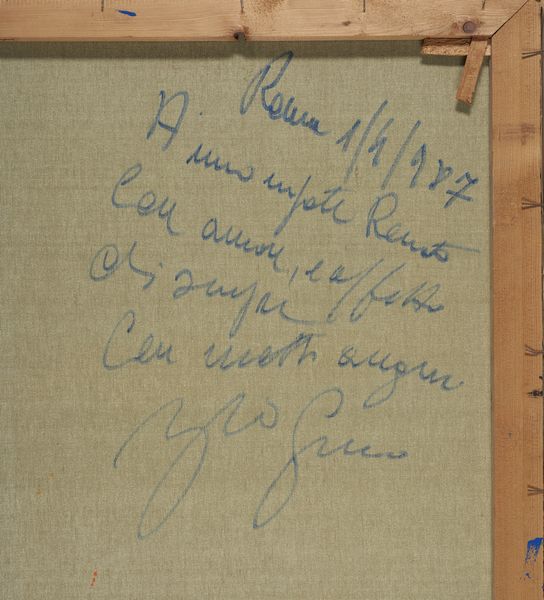 Roma 1/4/1987
A mio nipote Renato
Con amore, e affetto
di sempre
Con molti auguri
Zio